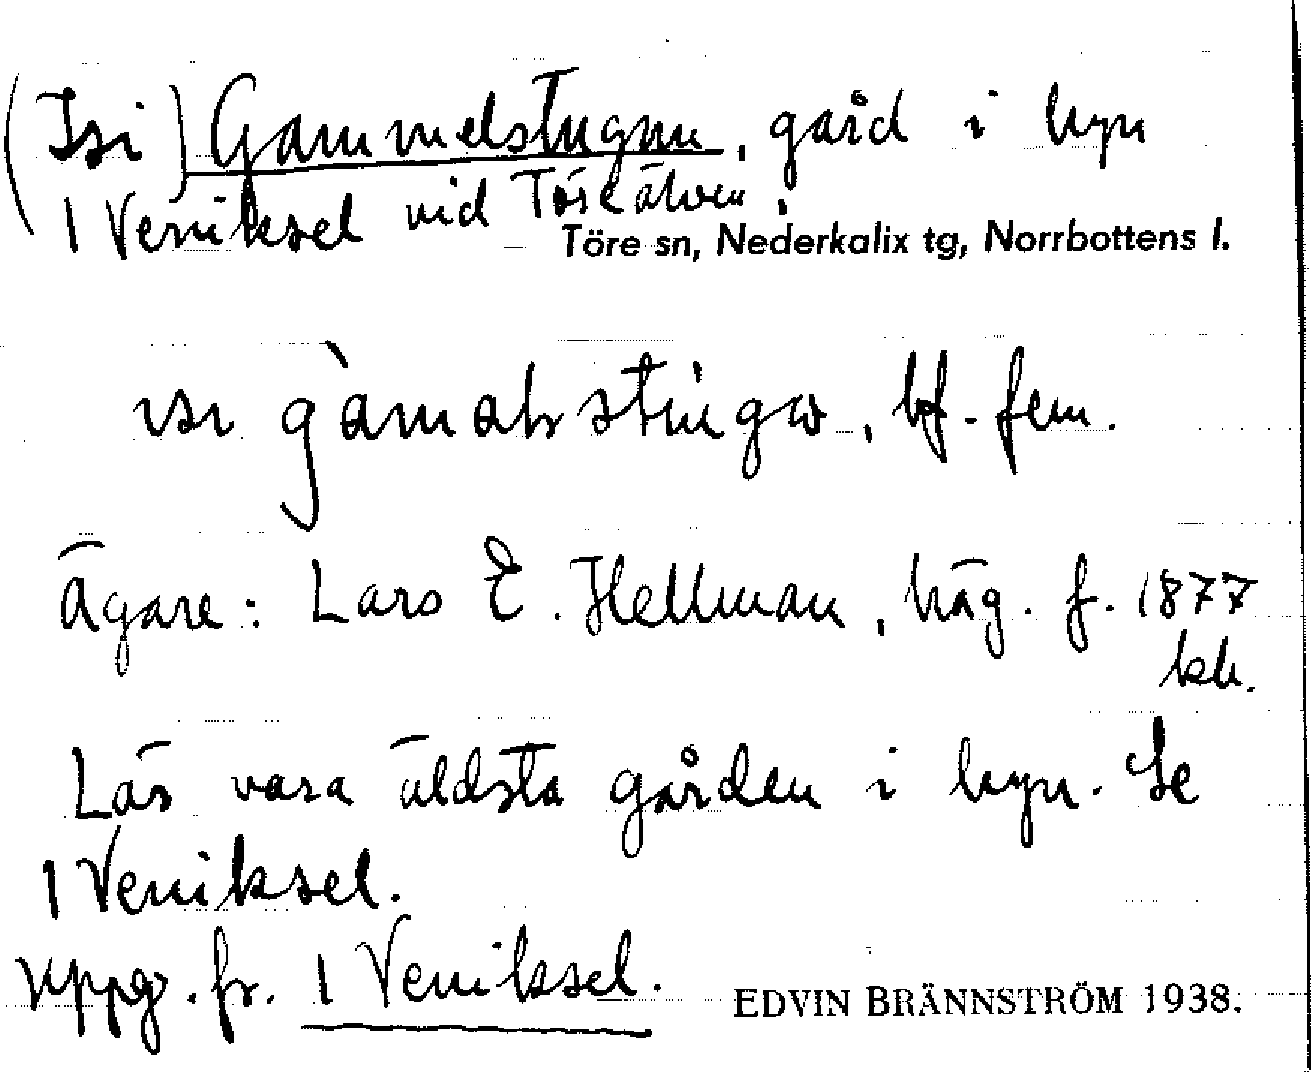 (Isi) Gammelstugan, gård i byn
1 Veniksel vid Töreälven.
Töre sn, Nederkalix tg, Norrbottens l.
ɪsɪ g̀amalstúgɷ, bf. fem.
Ägare: Lars E. Hellman, häg. f. 1877
kb.
Läs vara äldsta gården i byn. Se
1 Veniksel.
uppg. fr. 1 Veniksel.
EDVIN BRÄNNSTRÖM 1938.